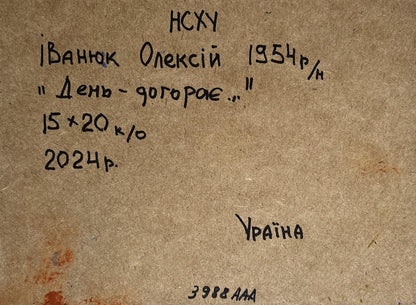 НСХУ
Іванюк Олексій 1954р/н
"День - догорає..."
15×20 к/о
2024р.
Враїна
3988ААА